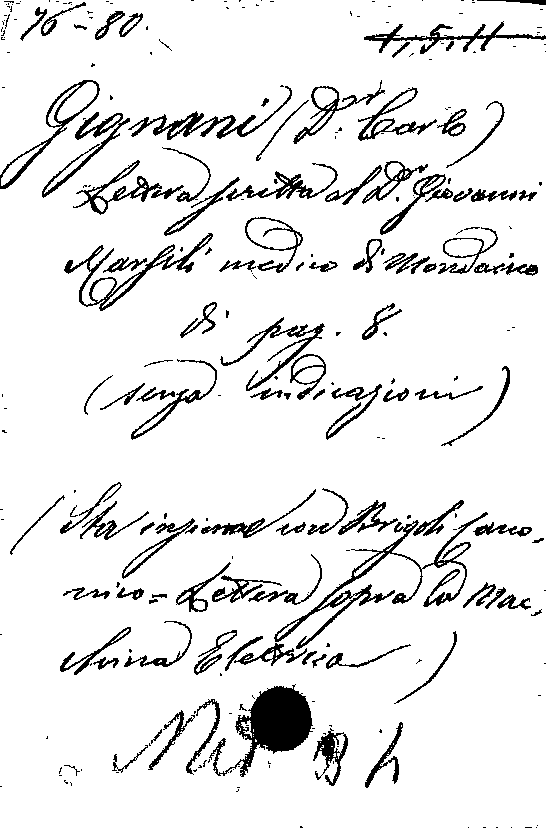 76-80.
1,5,11
Gignani (Dr. Carlo)
Lettera scritta al Dr. Giovanni
Marsili medico di Mondacino
di pag. 8.
(senza indicazioni)
(Sta insieme con Brigoli Cano-
nico = Lettera sopra la Mac-
china Eletrica.)